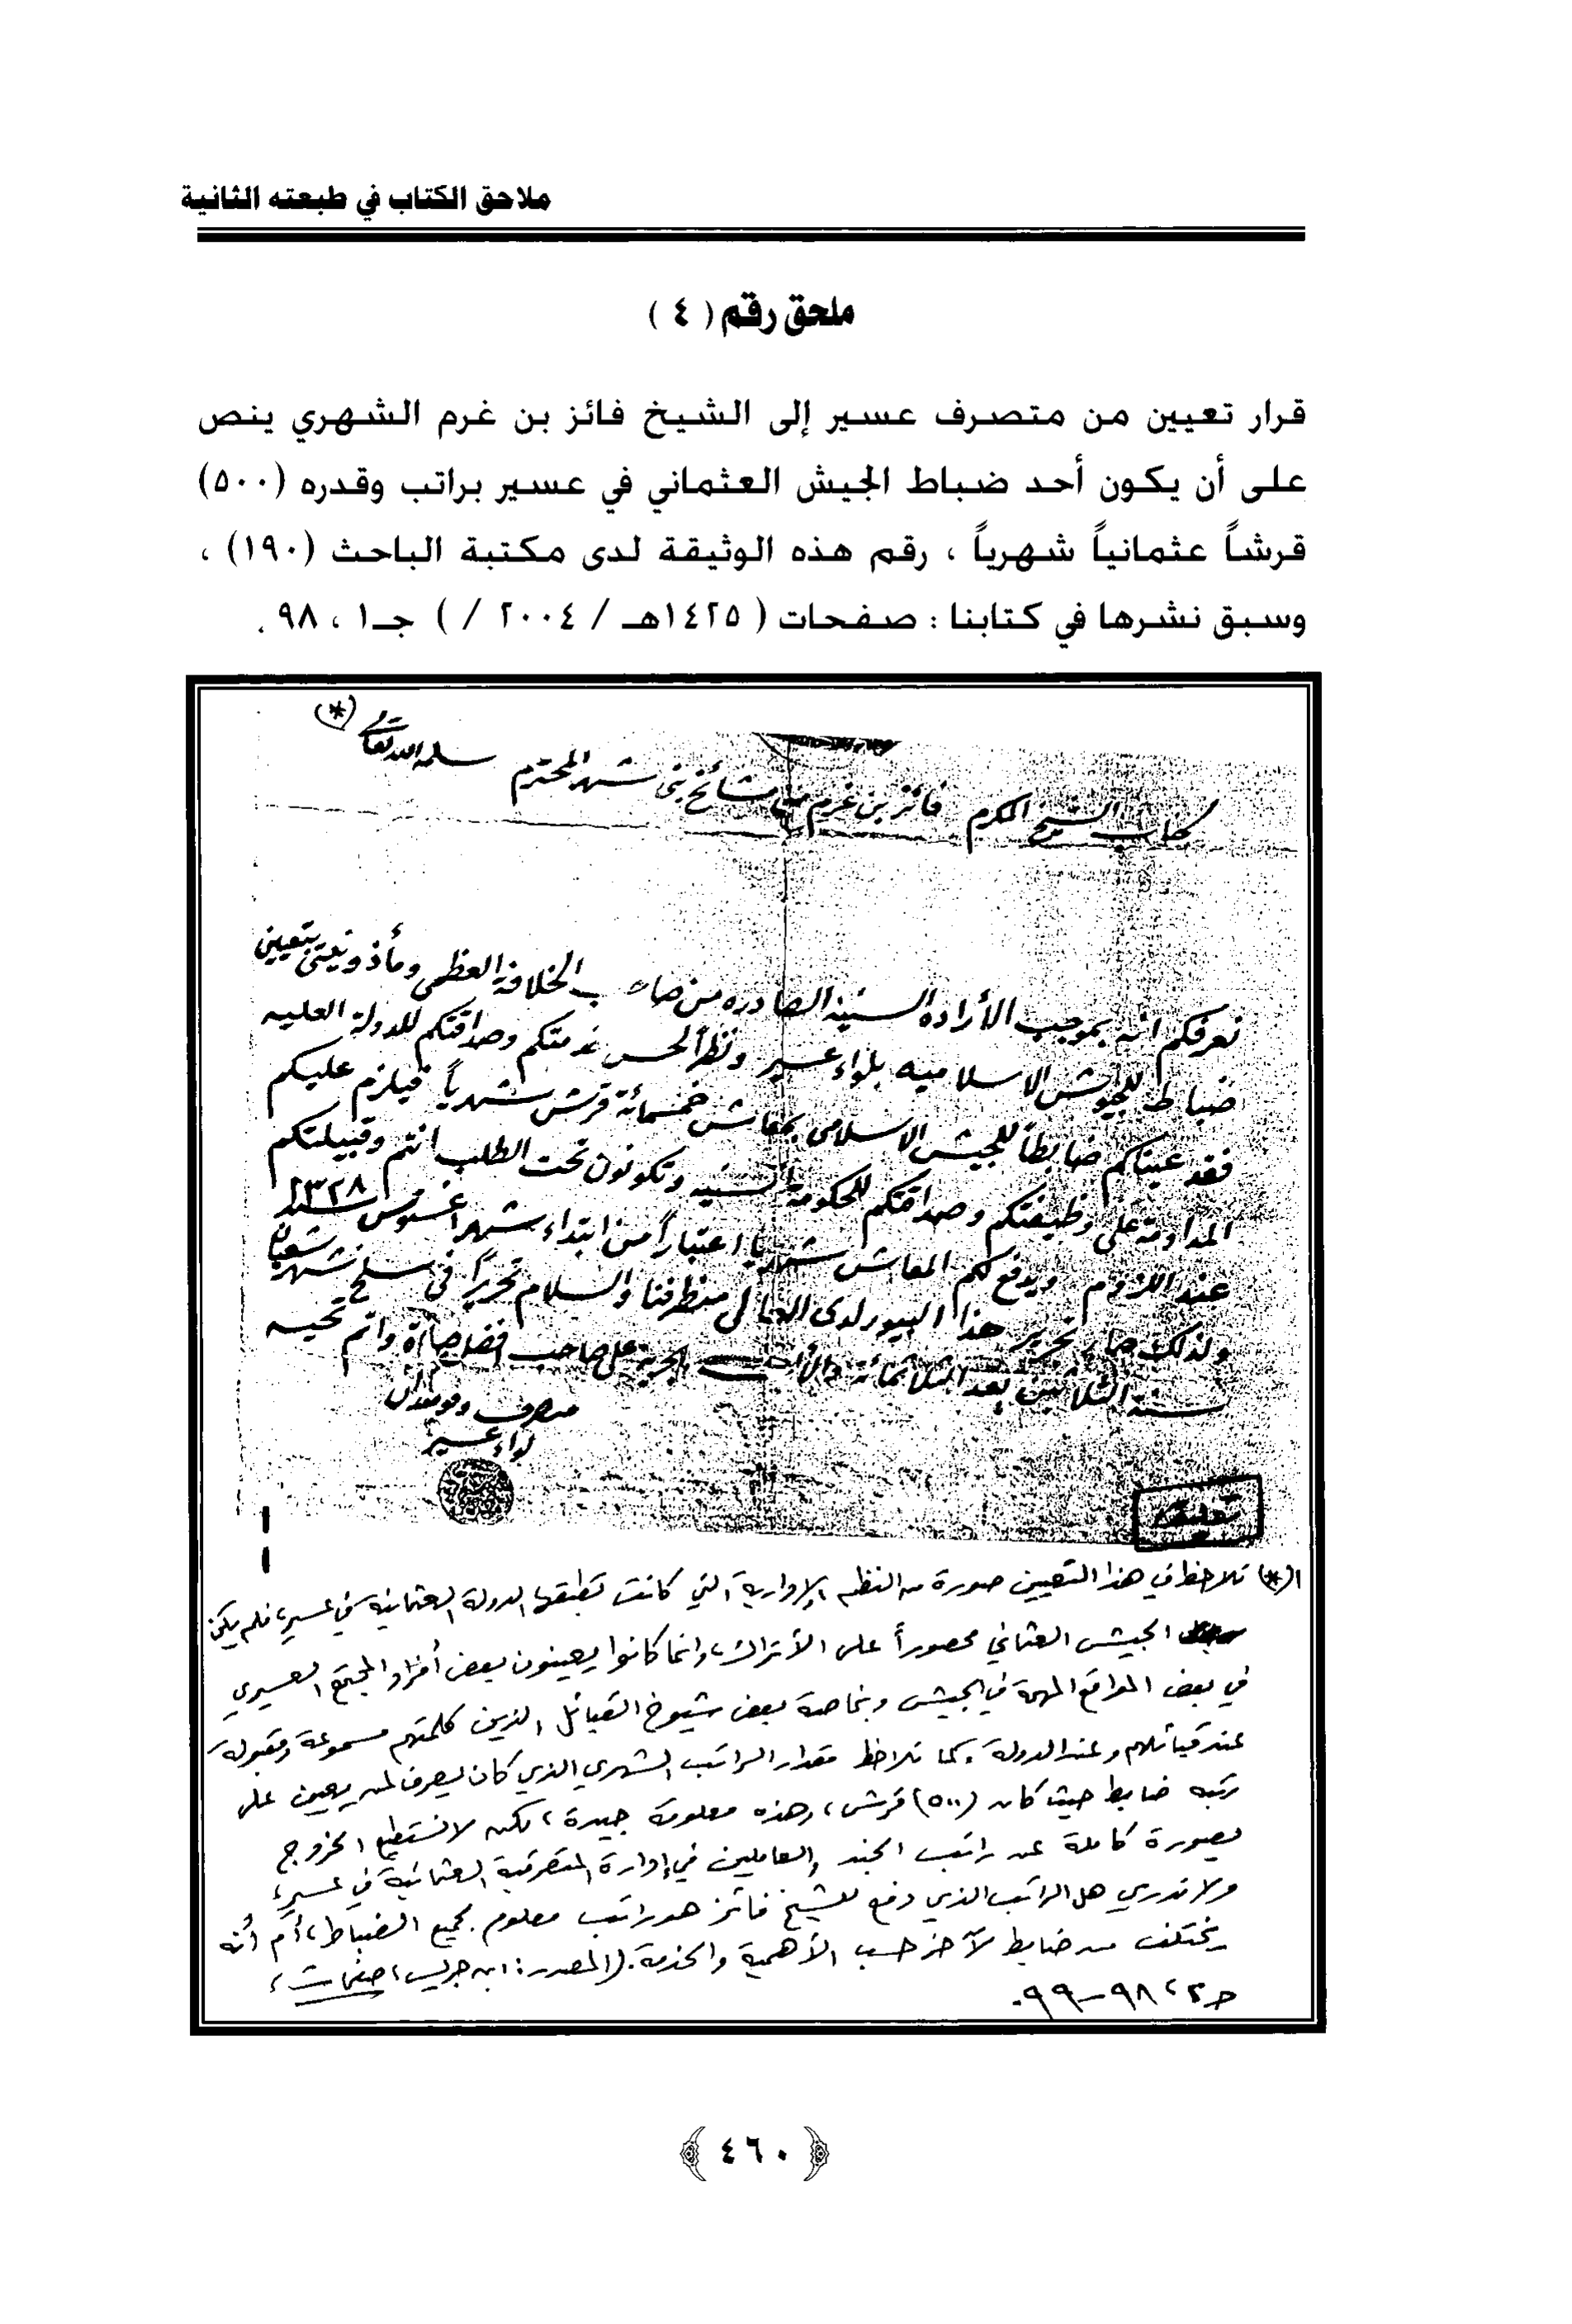 ملاحق الكتاب في طبعته الثانية
ملحق رقم ( ٤ )
قرار تعيين من متصرف عسير إلى الشيخ فائز بن غرم الشهري ينص
على أن يكون أحد ضباط الجيش العثماني في عسير براتب وقدره (٥٠٠)
قرشاً عثمانياً شهرياً ، رقم هذه الوثيقة لدى مكتبة الباحث (١٩٠) ،
وسبق نشرها في كتابنا : صفحات ( ١٤٢٥هـ / ٢٠٠٤ / ) جـ١ ، ٩٨ .
(*)
الشيخ المكرم فائز بن غرم من مشائخ بني شهر المحترم سلمه الله تعالى
نعرفكم انه بموجب الأراده السنيه الصادره من صاحب الخلافة العظمى ومأذونيتي بتعيين
ضباط للجيوش الاسلاميه بلواء عسير ونظراً لحسن خدمتكم وصداقتكم للدولة العليه
فقد عيناكم ضابطاً للجيش الاسلامي بمعاش خمسمائة قرش شهرياً فيلزم عليكم
المداومة على وظيفتكم وصداقتكم للحكومة السنيه وتكونون تحت الطلب انتم وقبيلتكم
عند اللزوم ويدفع لكم المعاش شهريا اعتباراً من ابتداء شهر اغسطوس سنة ١٣٢٨
ولذلك صار تحرير هذا البيورلدى العالي من طرفنا والسلام تحريراً في سلخ شهر شعبان
سنة الثلاثين بعد الثلاثمائة والألف الهجرية على صاحب افضل صلاة واتم تحيه
متصرف وقومندان
لواء عسير
تعليق
(*) نلاحظ في هذا التعيين صورة من النظم الإدارية التي كانت تطبقها الدولة العثمانية في عسير، فلم يكن
الجيش العثماني محصوراً على الأتراك، وانما كانوا يعينون بعض أفراد المجتمع العسيري
في بعض المواقع المهمة في الجيش وبخاصة بعض شيوخ القبائل الذين كلمتهم مسموعة ومقبولة
عند قبائلهم وعند الدولة، كما نلاحظ مقدار الراتب الشهري الذي كان يصرف لمن يعين على
رتبه ضابط حيث كان (٥٠٠) قرش، وهذه معلومة جيدة، لكن لا نستطيع الخروج
بصورة كاملة عن راتب الجند والعاملين في إدارة المتصرفية العثمانية في عسير،
ولا ندري هل الراتب الذي دفع للشيخ فائز هو راتب معلوم لجميع الضباط، أم أنه
يختلف من ضابط لآخر حسب الأهمية والخدمة. (المصدر: ابن جريس، صفحات،
جـ٢، ٩٨-٩٩.
٤٦٠